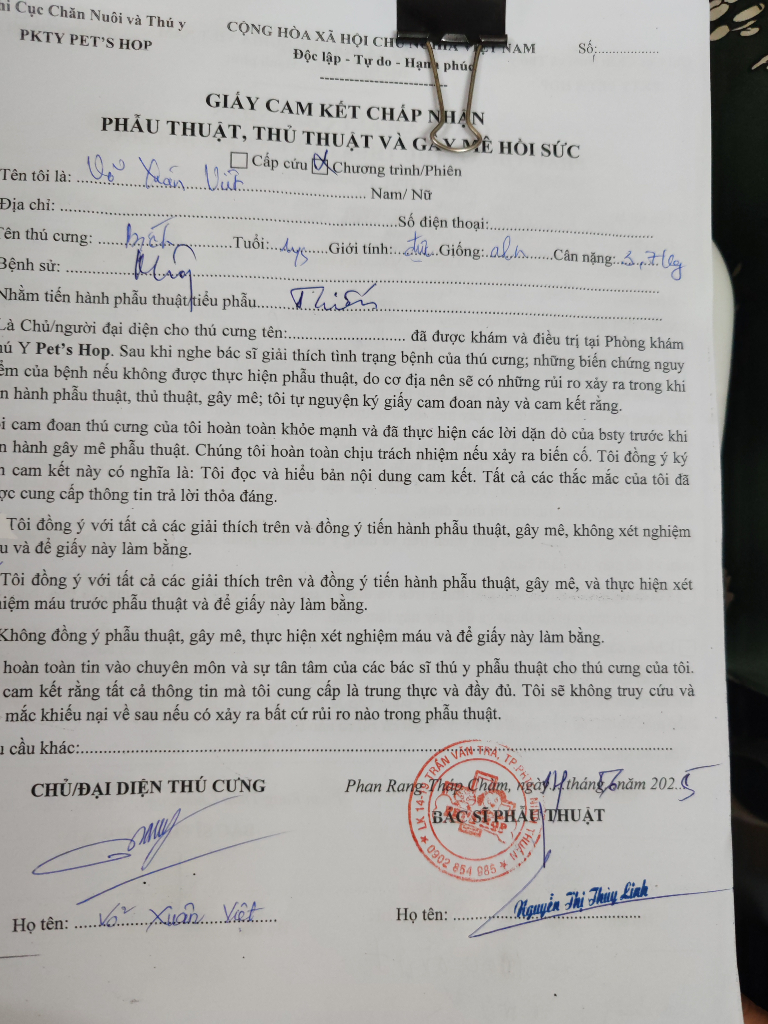 hi Cục Chăn Nuôi và Thú y
PKTY PET'S HOP
CỘNG HÒA XÃ HỘI CHỦ NGHĨA VIỆT NAM
Số:.................
Độc lập - Tự do - Hạnh phúc
GIẤY CAM KẾT CHẤP NHẬN
PHẪU THUẬT, THỦ THUẬT VÀ GÂY MÊ HỒI SỨC
Cấp cứu Chương trình/Phiên
Tên tôi là: Võ Xuân Việt Nam/ Nữ
Địa chỉ: Số điện thoại:
Tên thú cưng: Tuổi: Giới tính: đực Giống: aln Cân nặng: 3,7kg
Bệnh sử:
Nhằm tiến hành phẫu thuật/tiểu phẫu Thiến
Là Chủ/người đại diện cho thú cưng tên:............................ đã được khám và điều trị tại Phòng khám
hú Y Pet's Hop. Sau khi nghe bác sĩ giải thích tình trạng bệnh của thú cưng; những biến chứng nguy
ểm của bệnh nếu không được thực hiện phẫu thuật, do cơ địa nên sẽ có những rủi ro xảy ra trong khi
n hành phẫu thuật, thủ thuật, gây mê; tôi tự nguyện ký giấy cam đoan này và cam kết rằng.
i cam đoan thú cưng của tôi hoàn toàn khỏe mạnh và đã thực hiện các lời dặn dò của bsty trước khi
n hành gây mê phẫu thuật. Chúng tôi hoàn toàn chịu trách nhiệm nếu xảy ra biến cố. Tôi đồng ý ký
n cam kết này có nghĩa là: Tôi đọc và hiểu bản nội dung cam kết. Tất cả các thắc mắc của tôi đã
ợc cung cấp thông tin trả lời thỏa đáng.
Tôi đồng ý với tất cả các giải thích trên và đồng ý tiến hành phẫu thuật, gây mê, không xét nghiệm
u và để giấy này làm bằng.
Tôi đồng ý với tất cả các giải thích trên và đồng ý tiến hành phẫu thuật, gây mê, và thực hiện xét
iệm máu trước phẫu thuật và để giấy này làm bằng.
Không đồng ý phẫu thuật, gây mê, thực hiện xét nghiệm máu và để giấy này làm bằng.
hoàn toàn tin vào chuyên môn và sự tận tâm của các bác sĩ thú y phẫu thuật cho thú cưng của tôi.
cam kết rằng tất cả thông tin mà tôi cung cấp là trung thực và đầy đủ. Tôi sẽ không truy cứu và
mắc khiếu nại về sau nếu có xảy ra bất cứ rủi ro nào trong phẫu thuật.
u cầu khác:
CHỦ/ĐẠI DIỆN THÚ CƯNG
Phan Rang Tháp Chàm, ngày 14 tháng 6 năm 2025
BÁC SĨ PHẪU THUẬT
LK 14-19 TRẦN VĂN TRÀ, TP.PHAN
0902 854 985
Họ tên: Võ Xuân Việt
Họ tên: Nguyễn Thị Thùy Linh